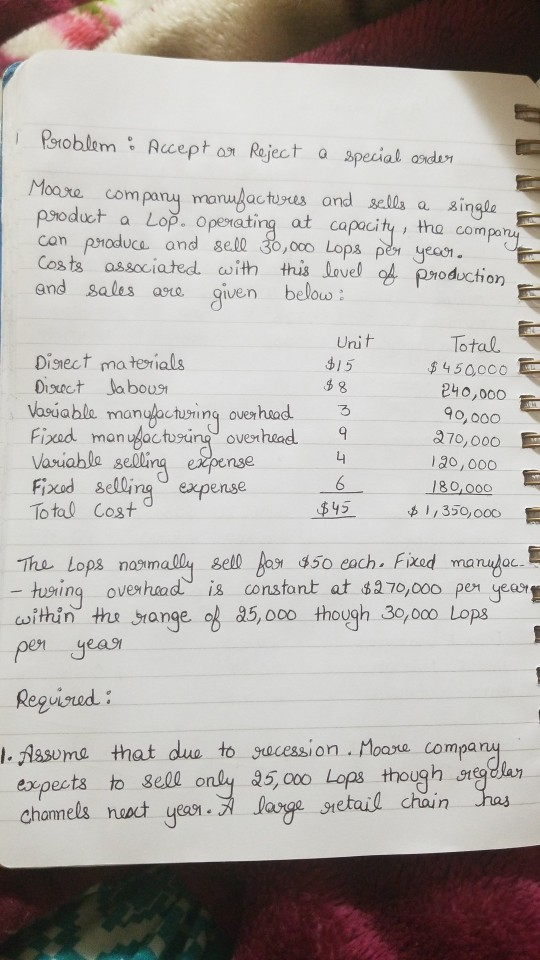 1 Problem : Accept or Reject a special order
Moore company manufactures and sells a single
product a Lop. Operating at capacity, the company
can produce and sell 30,000 Lops per year.
Costs associated with this level of production
and sales are given below :
Unit Total
Direct materials $15 $450,000
Direct labour $8 240,000
Variable manufacturing overhead 3 90,000
Fixed manufacturing overhead 9 270,000
Variable selling expense 4 120,000
Fixed selling expense 6 180,000
Total Cost $45 $1,350,000
The Lops normally sell for $50 each. Fixed manufac-
-turing overhead is constant at $270,000 per year
within the range of 25,000 though 30,000 Lops
per year
Required :
1. Assume that due to recession. Moore company
expects to sell only 25,000 Lops though regular
channels next year. A large retail chain has